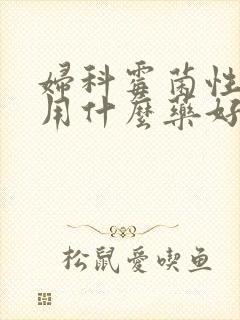 婦科霉菌性
用什麼藥好
松鼠愛喫鱼